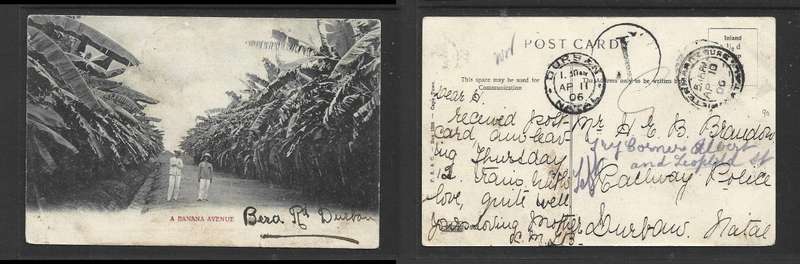 A BANANA AVENUE
Berea Rd Durban
POST CARD
Inland
½d
This space may be used for
Communication
The Address only to be written
DURBAN
AP 11
06
NATAL
T
AP 10
06
Dear S.
received post
card, am leav
ing Thursday
12 train, with
love, quite well
your loving Mother
Mr H E B Brandon
Try Corner Albert
and Leopold St
Railway Police
Durban. Natal